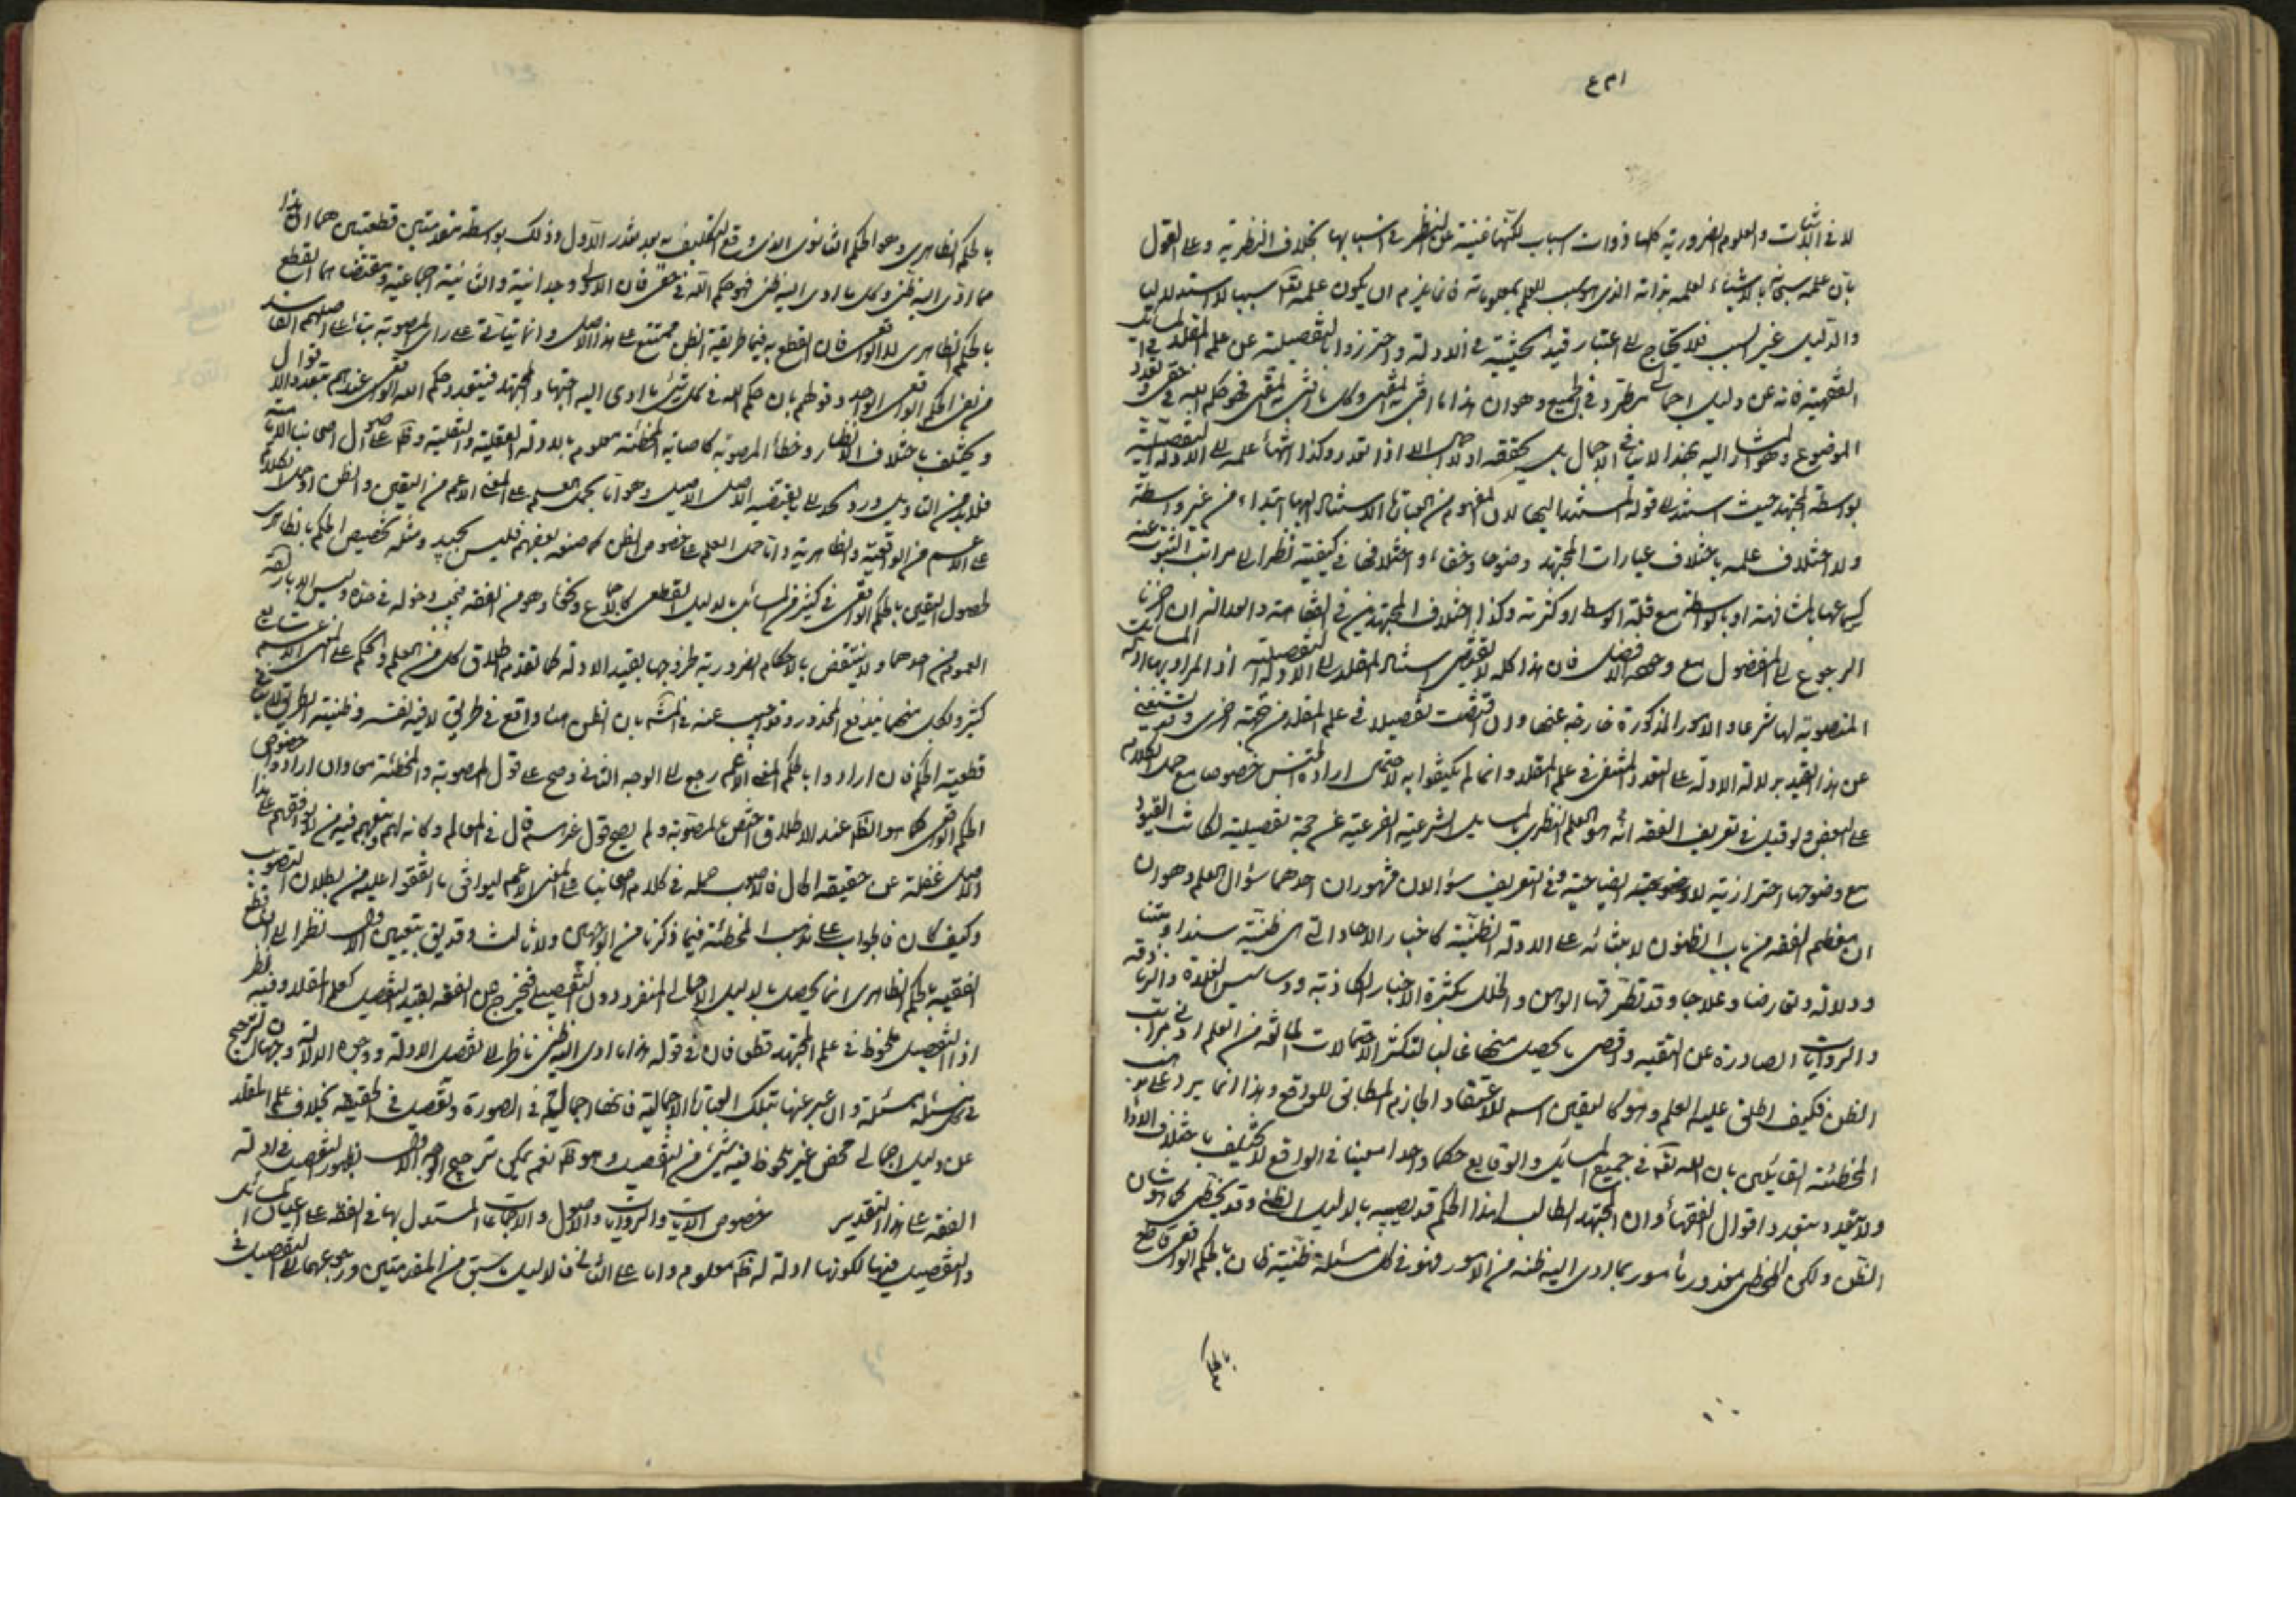 لا في الاثبات والعلوم الضرورية كلها ذوات اسباب لكنها غنية عن النظر في اسبابها بخلاف النظرية وعلى القول
بان علمه سبحانه بالاشياء لعلمه بذاته الذي هو سبب للعلم بمعلوماته فانما يلزم ان يكون علمه تعالى سببيا لا استدلاليا
والدليل غير السبب فلا يحتاج الى اعتبار قيد الحيثية في الادلة واحترزوا بالتفصيلية عن علم المقلد في المسائل
الفقهية فانه عن دليل اجمالي مطرد في الجميع وهو ان هذا ما افتى به المفتي وكل ما افتى به المفتي فهو حكم الله في حقي وتعدد
الموضوع المشار اليه بهذا لا ينافي الاجمال بل يحققه اذ لا اجمال الا اذا تعدد وكذا انتهاء علمه الى الادلة التفصيلية
بواسطة المجتهد حيث استند الى قوله المستند اليها لان المفهوم من العبارة الاستناد اليها ابتداء من غير واسطة
ولا اختلاف علمه باختلاف عبارات المجتهد وضوحا وخفاء واختلافها في كيفية نظرا الى مراتب الثبوت عنه
كسماعها بالمشافهة او بالواسطة مع قلة الوسط او كثرته وكذا اختلاف المجتهدين في الفقاهة والعدالة ان اجزنا
الرجوع الى المفضول مع وجود الافضل فان هذا كله لا يقتضي استناد المقلد الى الادلة التفصيلية اذ المراد بها ادلة المسائل
المنصوبة لها شرعا والامور المذكورة خارجة عنها وان اقتضت تفصيلا في علم المقلد من جهة اخرى وقد يستغنى
عن هذا القيد بدلالة الادلة على التعدد المنتفي في علم المقلد وانما لم يكتفوا به لاحتمال ارادة الجنس خصوصا مع حمل الكلام
على البعض ولو قيل في تعريف الفقه انه هو العلم النظري بالمسايل الشرعية الفرعية عن حجة تفصيلية لكانت القيود
مع وضوحها احترازية لا توضيحية ايضاحية وفي التعريف سؤالان مشهوران احدهما سؤال العلم وهو ان
ان معظم الفقه من باب الظنون لابتنائه على الادلة الظنية كاخبار الاحاد التي هي ظنية سندا ومتنا
ودلالة وتعارضا وعلاجا وقد تطرق فيها الوهن والخلل بكثرة الاخبار الكاذبة ودسايس الغلاة والزنادقة
والروايات الصادرة عن التقية واقصى ما يحصل منها غالبا لتكثر الاحتمالات المانعة من العلم ادنى مراتب
الظن فكيف اطلق عليه العلم وهو كاليقين اسم للاعتقاد الجازم المطابق للواقع وهذا انما يرد على مذهب
المخطئة القائلين بان لله تعالى في جميع المسائل والوقايع حكما واحدا معينا في الواقع لا يختلف باختلاف الاراء
ولا يتعدد بتعدد اقوال الفقهاء وان المجتهد الطالب لهذا الحكم قد يصيبه بالدليل الظني وقد يخطئ كما هو شان
الظن ولكن المخطئ معذور مأمور بما ادى اليه ظنه من الامور فهو في كل مسئلة ظنية ظان بالحكم الواقعي قاطع
بالحكم
بالحكم الظاهري وهو الحكم الثانوي الذي وقع التكليف به بعد تعذر الاول وذلك بواسطة مقدمتين قطعيتين هما ان هذا
ما ادى اليه ظني وكل ما ادى اليه ظني فهو حكم الله في حقي فان الاولى وجدانية والثانية اجماعية ومقتضاهما القطع
بالحكم الظاهري لا الواقعي فان القطع به فيما طريقه الظن ممتنع على هذا الاصل وانما يتأتى على راي المصوبة بناء على اصلهم الفاسد
من نفي الحكم الواقعي الواحد وقولهم بان حكم الله في كل شيء ما ادى اليه اجتهاد المجتهد فيتعدد حكم الله الواقعي عندهم بتعدد الاقوال
ويختلف باختلاف الانظار وخطأ المصوبة كاصابة المخطئة معلوم بالادلة العقلية والنقلية وظ على اصول اصحابنا الامامية
فلا بد من التاويل ورد الحد الى ما يقتضيه الاصل الاصيل وهو اما بحمل العلم على المعنى الاعم من اليقين والظن او حمل الاحكام
على الاعم من الواقعية والظاهرية واما حمل العلم على خصوص الظن كما صنعه بعضهم فليس بجيد ومثله تخصيص الحكم بالظاهري
لحصول اليقين بالحكم الواقعي في كثير من المسائل بالدليل القطعي كالاجماع ونحوه وهو من الفقه فيجب دخوله في حده وليس الا بارادة
العموم من احدهما ولا ينتقض بالاحكام الضرورية لخروجها بقيد الادلة كما تقدم واطلاق كل من العلم والحكم على المعنى الاعم شايع
كثير ولكل منهما يندفع المحذور وقد اجيب عنه في المشهور بان الظن هنا واقع في طريق لا فيه نفسه وظنية الطريق لا تنافي
قطعية الحكم فان ارادوا بالحكم المعنى الاعم رجع الى الوجه الثاني وصح على قول المصوبة والمخطئة معا وان ارادوا خصوص
الحكم الواقعي كما هو الظاهر عند الاطلاق اختص بالمصوبة ولم يصح قول غيرهم قال في المعالم وكانه لهم وتبعهم فيه من لا يوافقهم على هذا
الاصل غفلة عن حقيقة الحال فالاصوب حمله في كلام اصحابنا على المعنى الاعم ليوافق ما اتفقوا عليه من بطلان التصويب
وكيف كان فالجواب على مذهب المخطئة فيما ذكرنا من الوجهين ولا ثالث وقد يق بتعيين الاول نظرا الى ان قطع
الفقيه بالحكم الظاهري انما يحصل بالدليل الاجمالي المنفرد دون التفصيلي فيخرج عن الفقه بقيد التفصيل كعلم المقلد وفيه نظر
اذ التفصيل ملحوظ في علم المجتهد قطعا فان في قوله هذا ما ادى اليه ظني ناظر الى تفصيل الادلة ووجوه الدلالة وجهات الترجيح
في كل مسئلة مسئلة وان عبر عنها بتلك العبارة الاجمالية فانها اجمالية في الصورة وتفصيل في الحقيقة بخلاف علم المقلد
عن دليل اجمالي محض غير ملحوظ فيه شيء من التفصيل وهو ظ نعم يمكن ترجيح الوجه الاول بظهور التفصيل في ادلة
الفقه على هذا التقدير خصوص الايات والروايات والاصول والاجماعات المستدل بها في الفقه على اعيان المسائل
والتفصيل فيها لكونها ادلة له ظ معلوم واما على الثاني فالدليل ما سبق من المقدمتين ورجوعهما الى التفصيل في